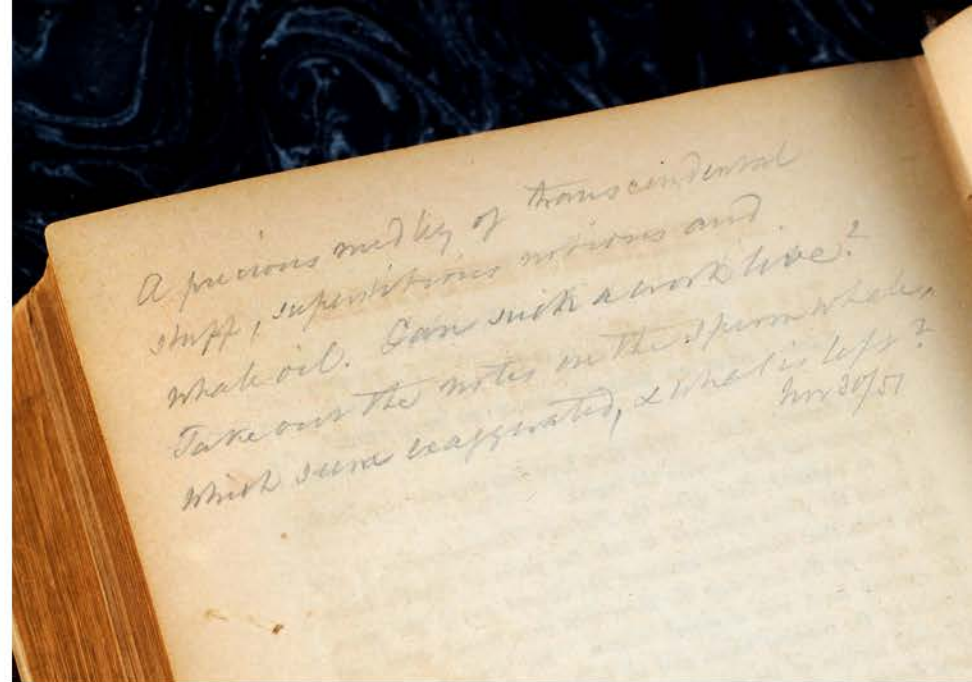 A precious medley of transcendental
stuff, superstitious notions and
whale oil. Can such a work live?
Take out the notes on the Sperm whale,
which seem exaggerated, & what is left?
Nov 30/51